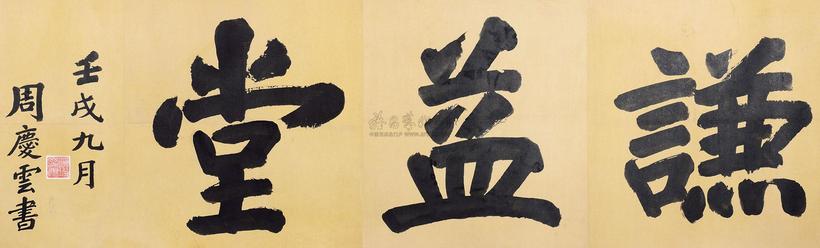 謙益堂
壬戌九月
周慶雲書